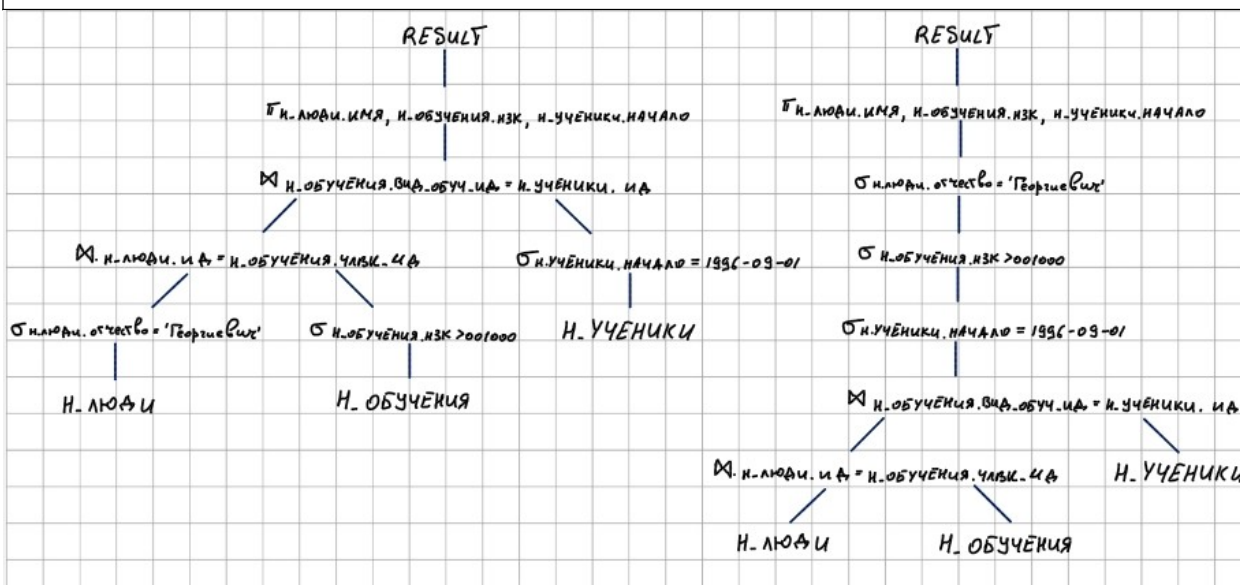 RESULT
π н_люди.имя, н_обучения.нзк, н_ученики.начало
⋈ н_обучения.вид_обуч_ид = н_ученики. ид
⋈. н_люди. ид = н_обучения.члвк_ид
σ н.ученики.начало = 1996-09-01
σ н.люди.отчество = 'Георгиевич'
σ н_обучения.нзк >001000
Н_УЧЕНИКИ
Н_ЛЮДИ
Н_ОБУЧЕНИЯ
RESULT
π н_люди.имя, н_обучения.нзк, н_ученики.начало
σ н.люди.отчество = 'Георгиевич'
σ н_обучения.нзк >001000
σ н.ученики.начало = 1996-09-01
⋈ н_обучения.вид_обуч_ид = н_ученики. ид
⋈. н_люди. ид = н_обучения.члвк_ид
Н_УЧЕНИКИ
Н_ЛЮДИ
Н_ОБУЧЕНИЯ